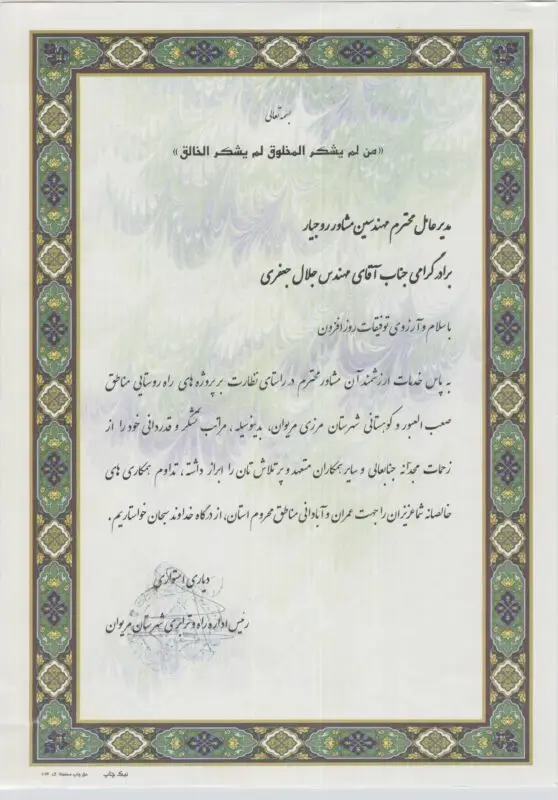 بسمه تعالی
«من لم یشکر المخلوق لم یشکر الخالق»
مدیر عامل محترم مهندسین مشاور روجیار
برادر گرامی جناب آقای مهندس جلال جعفری
با سلام و آرزوی توفیقات روز افزون
به پاس خدمات ارزشمند آن مشاور محترم در راستای نظارت بر پروژه های راه روستایی مناطق
صعب العبور و کوهستانی شهرستان مرزی مریوان، بدینوسیله، مراتب تشکر و قدردانی خود را از
زحمات مجدّانه جنابعالی و سایر همکاران متعهد و پر تلاش تان را ابراز داشته، تداوم همکاری های
خالصانه شما عزیزان را جهت عمران و آبادانی مناطق محروم استان، از درگاه خداوند سبحان خواستاریم.
دیاری استوازی
رئیس اداره راه و ترابری شهرستان مریوان
نیک چاپ
حق چاپ محفوظ